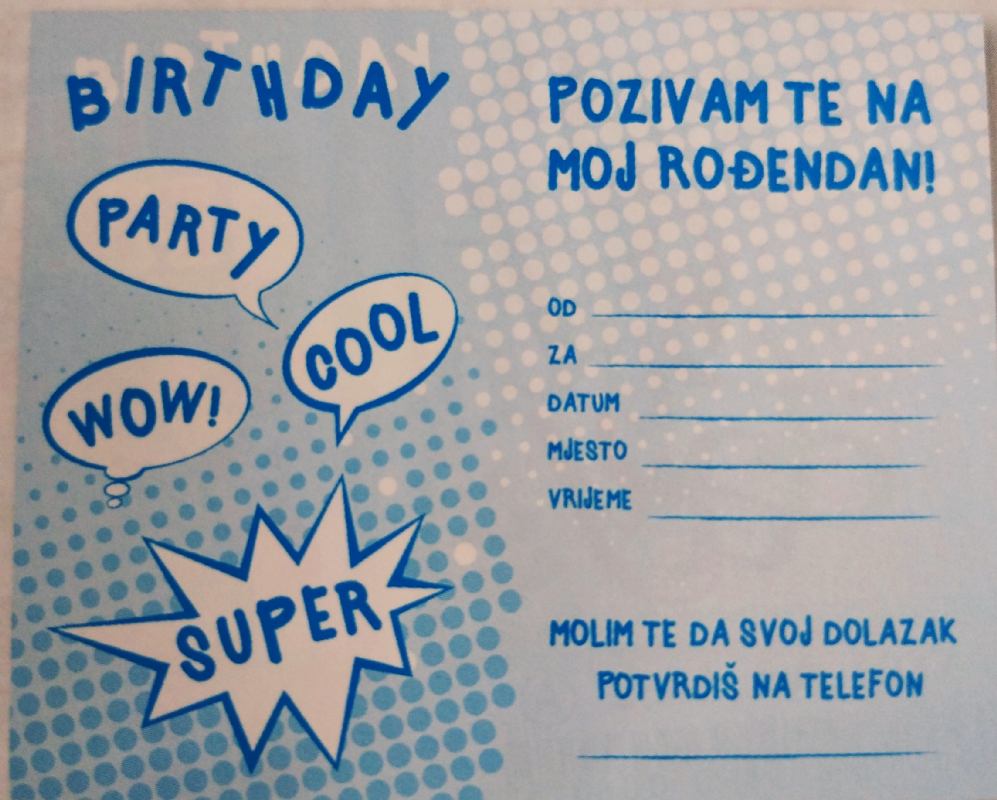 BIRTHDAY
PARTY
COOL
WOW!
SUPER
POZIVAM TE NA
MOJ ROĐENDAN!
OD
ZA
DATUM
MJESTO
VRIJEME
MOLIM TE DA SVOJ DOLAZAK
POTVRDIŠ NA TELEFON